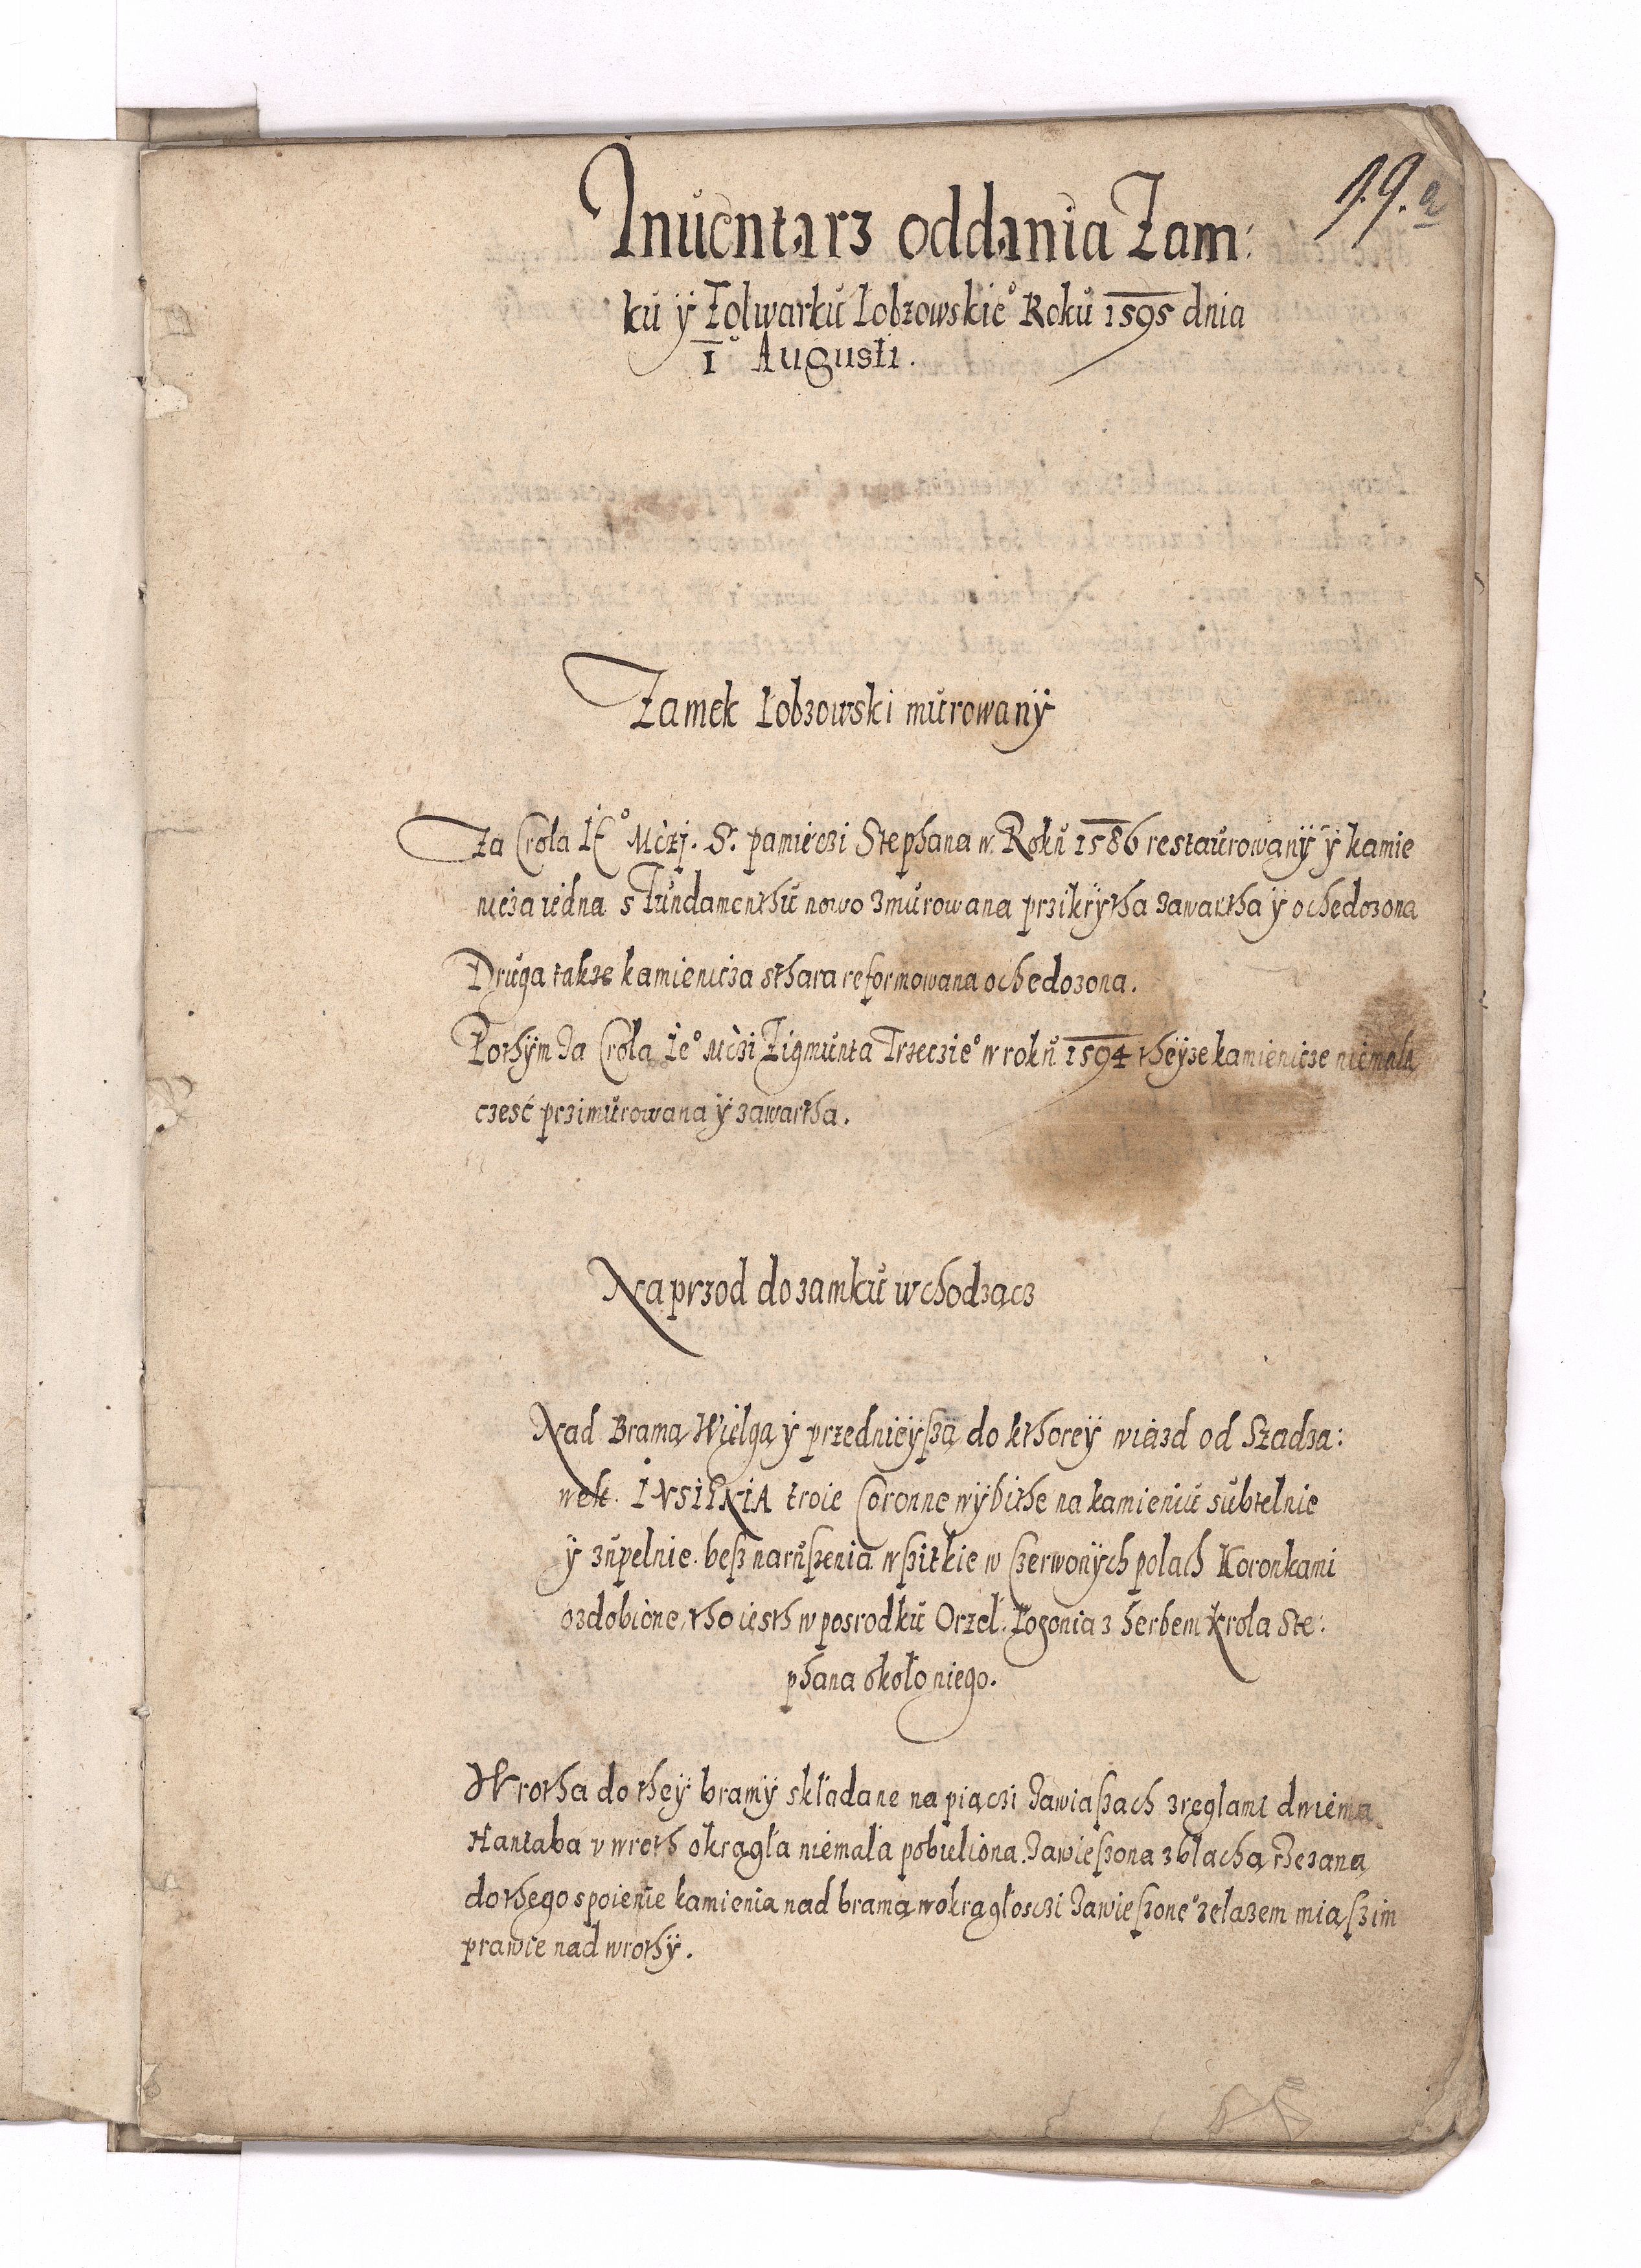 19. a
Inuentarz oddania Zam:
ku ÿ Folwarku Lobzowskie° Roku 1595 dnia
1° Augusti.
Zamek Lobzowski murowanÿ
Za Crola JE° Mczj. S. pamieczi Stephana w Roku 1586 restaurowanÿ ÿ kamie
nicza iedna s Fundamenthu nowo zmurowana przikrÿtha zawartha ÿ ochedozona
Druga takze kamienicza sthara reformowana ochedozona.
Pothÿm za Crola Je° Mczi Zigmunta Trzeczie° w roku 1594 theÿze kamienicze niemala
czesć przimurowana ÿ zawartha.
Naprzod do zamku wchodzącz
Nad Bramą Wielgą ÿ przednieÿszą do kthoreÿ wiazd od Szadza:
wek. INSIGNIA troie Coronne wÿbithe na kamieniu subtelnie
ÿ zupelnie. besz naruszenia wszitkie w czerwonÿch polach Koronkami
ozdobione, tho iesth w posrodku Orzel. Pogonia z herbem Krola Ste:
phana około niego.
Wrotha do theÿ bramÿ składane na piączi zawiasach z reglami dwiema
Hantaba v wroth okrągła niemała pobieliona. zawieszona z blachą rzezaną
do thego spoienie kamienia nad bramą w okrągłosczi zawieszone° zelazem miąszim
prawie nad wrothÿ.